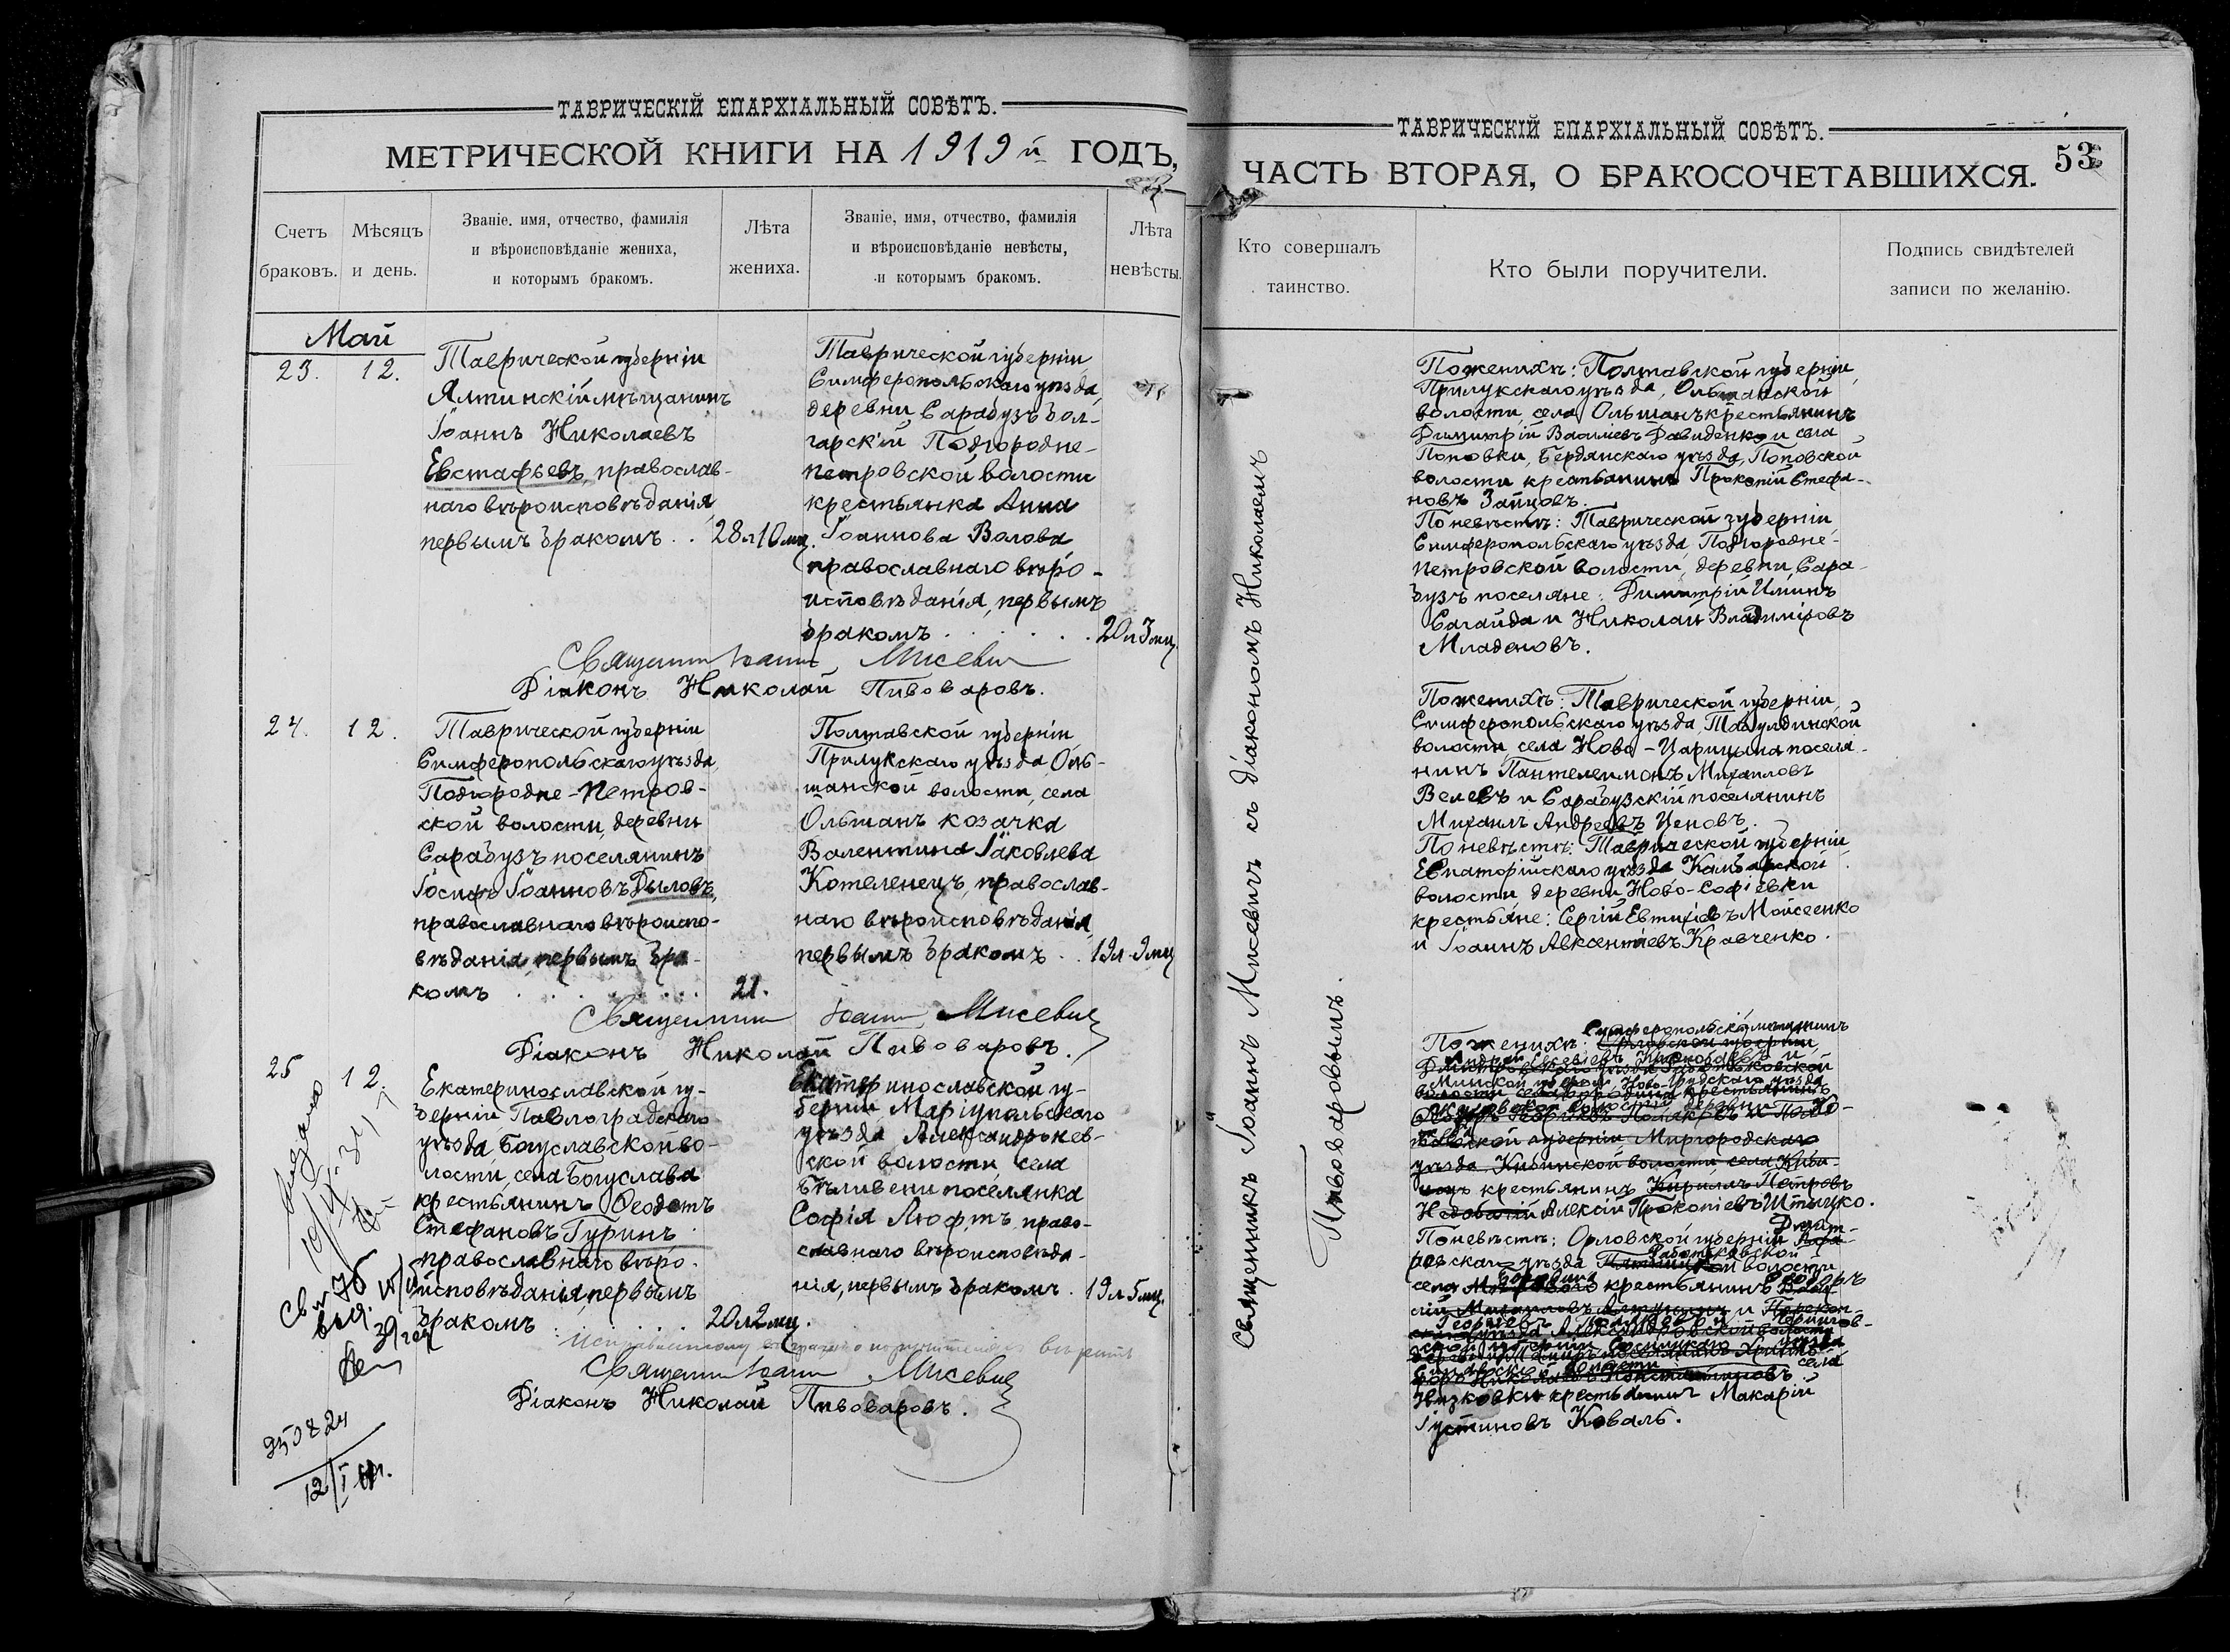 ТАВРИЧЕСКІЙ ЕПАРХІАЛЬНЫЙ СОВѢТЪ.
МЕТРИЧЕСКОЙ КНИГИ НА 1919й ГОДЪ,
Счетъ
браковъ.
Мѣсяцъ
и день.
Званіе, имя, отчество, фамилія
и вѣроисповѣданіе жениха,
и которымъ бракомъ.
Лѣта
жениха.
Званіе, имя, отчество, фамилія
и вѣроисповѣданіе невѣсты,
и которымъ бракомъ.
Лѣта
невѣсты.
Май
23. 12.
Таврической губерніи
Ялтинскій мѣщанинъ
Іоаннъ Николаевъ
Евстафьевъ, православ-
наго вѣроисповѣданія,
первымъ бракомъ . . 28л10мц.
Таврической губерніи
Симферопольскаго уѣзда,
деревни Сарабузъ Бол-
гарскій Подгородне-
Петровской волости
крестьянка Анна
Іоаннова Волова
православнаго вѣро-
исповѣданія, первымъ
бракомъ . . . . . . 20л3мц.
Священник Іоанн Мисевич
Діаконъ Николай Пивоваровъ.
24. 12.
Таврической губерніи
Симферопольскаго уѣзда,
Подгородне-Петров-
ской волости, деревни
Сарабузъ поселянинъ
Іосифъ Іоанновъ Дыловъ,
православнаго вѣроиспо-
вѣданія, первымъ бра-
комъ . . . . . . . . 21.
Полтавской губерніи
Прилукскаго уѣзда, Оль-
шанской волости, села
Ольшанъ козачка
Валентина Іаковлева
Котеленецъ, православ-
наго вѣроисповѣданія,
первымъ бракомъ . . 19л-9мц
Священник Іоанн Мисевич
Діаконъ Николай Пивоваровъ.
25 12.
Екатеринославской гу-
берніи, Павлоградскаго
уѣзда, Богуславской во-
лости, села Богуслава
крестьянинъ Ѳеодотъ
Стефановъ Гуринъ
православнаго вѣро-
исповѣданія, первымъ
бракомъ . . . . . 20л2мц.
Екатеринославской гу-
берніи Маріупольскаго
уѣзда Александроnев-
ской волости, села
Бѣливени поселянка
Софія Люфтъ, право-
славнаго вѣроисповѣда-
нія, первымъ бракомъ . 19л5мц.
поручителях вѣрить
Священник Іоанн Мисевич
Діаконъ Николай Пивоваровъ.
выдано
Св № 76
выд.
12/I
ТАВРИЧЕСКІЙ ЕПАРХІАЛЬНЫЙ СОВѢТЪ.
ЧАСТЬ ВТОРАЯ, О БРАКОСОЧЕТАВШИХСЯ.
53
Кто совершалъ
таинство.
Кто были поручители.
Подпись свидѣтелей
записи по желанію.
Священникъ Іоаннъ Мисевичъ съ діакономъ Николаемъ
Пивоваровымъ.
По женихѣ: Полтавской губерніи,
Прилукскаго уѣзда, Ольшанской
волости, села Ольшанъ крестьянинъ
Димитрій Василіевъ Давиденко и села
Поповки, Бердянскаго уѣзда, Поповской
волости крестьянинъ Прокопій Стефа-
новъ Зайцовъ.
По невѣстѣ: Таврической губерніи
Симферопольскаго уѣзда, Подгородне-
Петровской волости, деревни Сара-
бузъ поселяне: Димитрій Ильинъ
Сагайда и Николай Владиміровъ
Младеновъ.
По женихѣ: Таврической губерніи,
Симферопольскаго уѣзда, Табулдинской
волости, села Ново-Царицына поселя-
нинъ Пантелеимонъ Михаиловъ
Велевъ и Сарабузскій поселянинъ
Михаилъ Андреевъ Ценовъ.
По невѣстѣ: Таврической губерніи
Евпаторійскаго уѣзда Камбарской
волости деревни Ново-Софіевки
крестьяне: Сергій Евтихіевъ Мойсеенко
и Іоаннъ Авксентіевъ Кравченко.
По женихѣ: Орловской губерніи,
Симферопольскій мѣщанинъ
Андрей
Минской губерніи, Ново-Грудскаго уѣзда
волости деревни
губерніи Миргородскаго
уѣзда, Кибинской волости села Киби-
крестьянинъ Кириллъ Петровъ
Алексій Прокопіевъ Штыцко.
По невѣстѣ: Орловской губерніи Дмит-
ровскаго уѣзда волости
села крестьянинъ Ѳеодоръ
Георгіевъ и Чернигов-
ской губерніи Сосницкаго уѣзда
волости села
Низковки крестьянинъ Макарій
Іустиновъ Коваль.